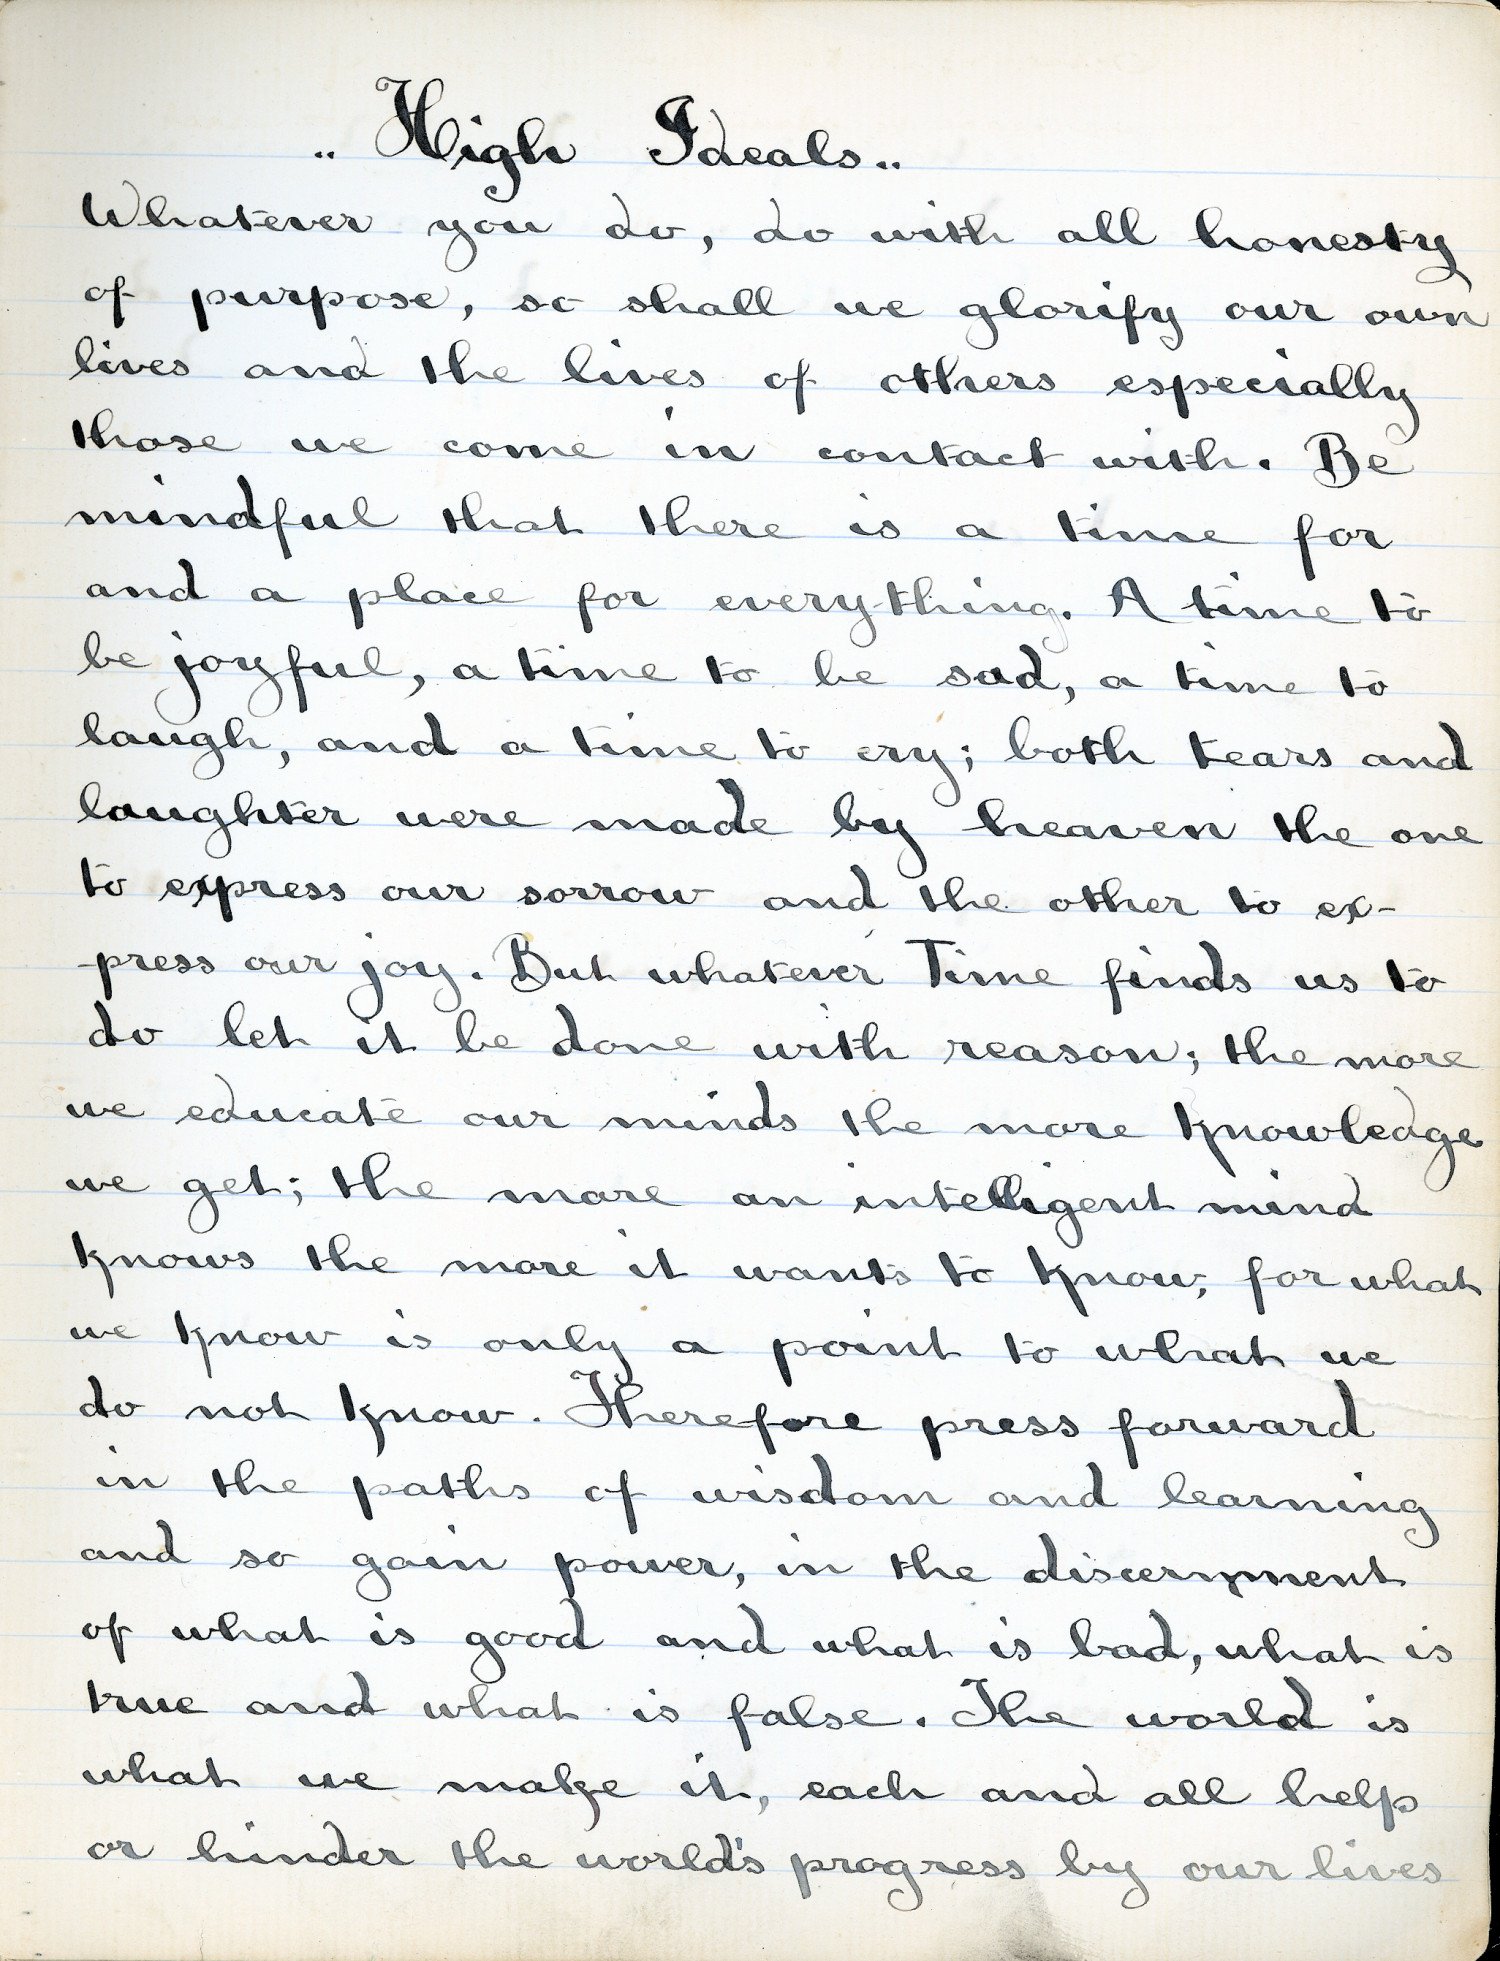 .. High Ideals ..
Whatever you do, do with all honesty
of purpose, so shall we glorify our own
lives and the lives of others especially
those we come in contact with. Be
mindful that there is a time for
and a place for everything. A time to
be joyful, a time to be sad, a time to
laugh, and a time to cry; both tears and
laughter were made by heaven the one
to express our sorrow and the other to ex-
-press our joy. But whatever Time finds us to
do let it be done with reason; the more
we educate our minds the more knowledge
we get; the more an intelligent mind
knows the more it wants to know, for what
we know is only a point to what we
do not know. Therefore press forward
in the paths of wisdom and learning
and so gain power, in the discernment
of what is good and what is bad, what is
true and what is false. The world is
what we make it, each and all help
or hinder the world's progress by our lives